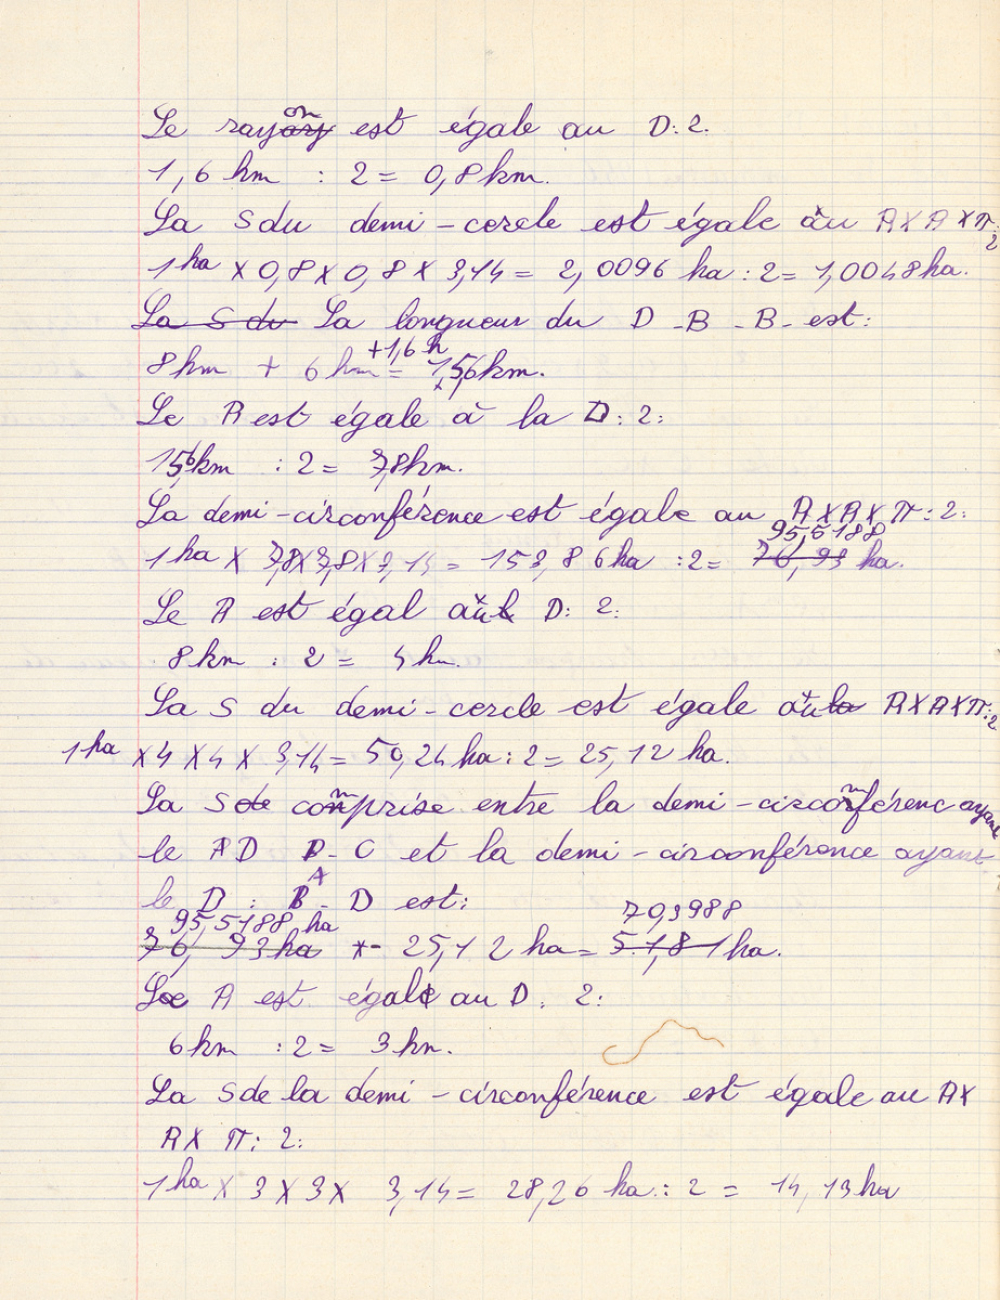 Le rayon est égale au D: 2.
1,6 km : 2 = 0,8 km.
La S du demi-cercle est égale au R X R X π: 2
1 ha x 0,8 x 0,8 x 3,14 = 2,0096 ha : 2 = 1,0048 ha.
La S du La longueur du D - B - B - est:
+1,6 k
8 km + 6 km = 15,6 km.
Le R est égale à la D: 2:
15,6 km : 2 = 7,8 km.
La demi-circonférence est égale au R X R X π: 2:
95,5188
1 ha x 7,8 x 7,8 x 3,14 = 153,86 ha : 2 = 76,93 ha.
Le R est égal au D: 2:
8 km : 2 = 4 km.
La S du demi-cercle est égale au la R X R X π: 2
1 ha x 4 x 4 x 3,14 = 50,24 ha : 2 = 25,12 ha.
La S de comprise entre la demi-circonférenc ayant
le RD D - C et la demi-circonférence ayant
A
le D : B - D est:
95,5188 ha 70,3988
76,93 ha - 25,12 ha = 51,81 ha.
Le R est égale au D: 2:
6 km : 2 = 3 km.
La S de la demi-circonférence est égale au R X
R X π: 2:
1 ha x 3 x 3 x 3,14 = 28,26 ha : 2 = 14,13 ha